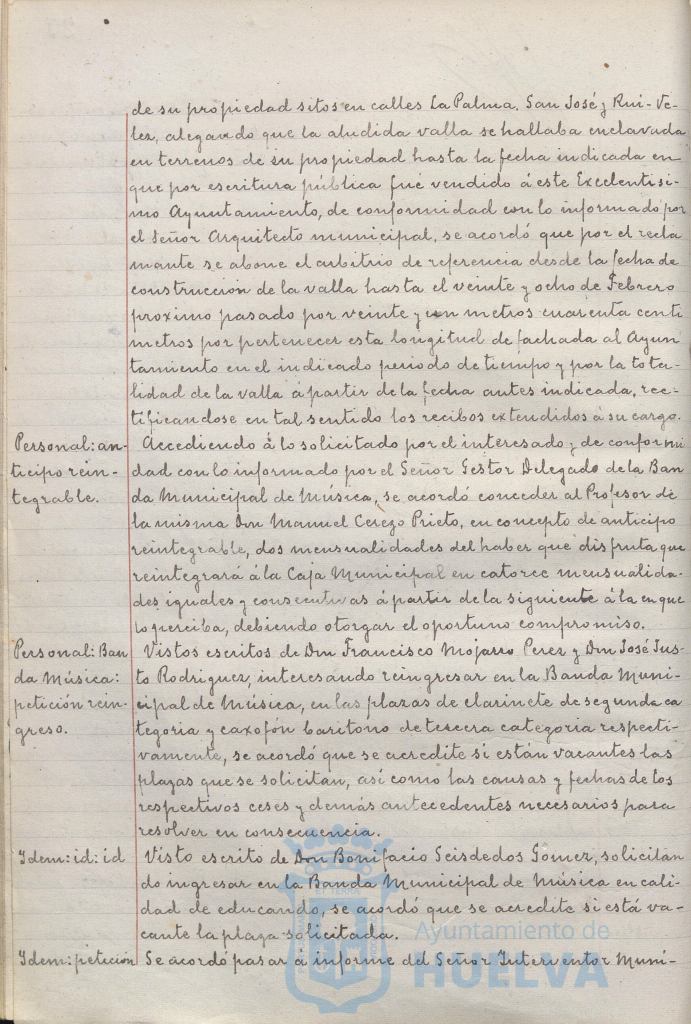 de su propiedad sitos en calles La Palma, San José y Rui-Ve-
lez, alegando que la aludida valla se hallaba enclavada
en terrenos de su propiedad hasta la fecha indicada en
que por escritura pública fué vendido á este Excelentisi-
mo Ayuntamiento, de conformidad con lo informado por
el Señor Arquitecto municipal, se acordó que por el recla
mante se abone el arbitrio de referencia desde la fecha de
construcción de la valla hasta el veinte y ocho de Febrero
proximo pasado por veinte y un metros cuarenta centi
metros por pertenecer esta longitud de fachada al Ayun-
tamiento en el indicado periodo de tiempo y por la tota-
lidad de la valla á partir de la fecha antes indicada, rec-
tificandose en tal sentido los recibos extendidos á su cargo.
Personal: an-
ticipo rein-
tegrable.
Accediendo á lo solicitado por el interesado y de conformi
dad con lo informado por el Señor Gestor Delegado de la Ban
da Municipal de Música, se acordó conceder al Profesor de
la misma Don Manuel Cerezo Prieto, en concepto de anticipo
reintegrable, dos mensualidades del haber que disfruta que
reintegrará á la Caja Municipal en catorce mensualida-
des iguales y consecutivas á partir de la siguiente á la en que
lo perciba, debiendo otorgar el oportuno compromiso.
Personal: Ban
da Música:
petición rein-
greso.
Vistos escritos de Don Francisco Mojarro Perez y Don José Jus-
to Rodriguez, interesando reingresar en la Banda Muni-
cipal de Música, en las plazas de clarinete de segunda ca
tegoria y saxofón baritono de tercera categoria respecti-
vamente, se acordó que se acredite si están vacantes las
plazas que se solicitan, así como las causas y fechas de los
respectivos ceses y demás antecedentes necesarios para
resolver en consecuencia.
Idem: id: id
Visto escrito de Don Bonifacio Seisdedos Gómez, solicitan
do ingresar en la Banda Municipal de Música en cali-
dad de educando, se acordó que se acredite si está va-
cante la plaza solicitada.
Idem: petición
Se acordó pasar á informe del Señor Interventor Muni-
Ayuntamiento de
HUELVA